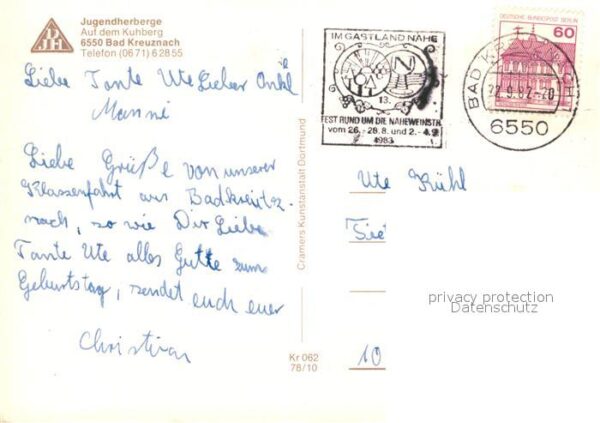 Jugendherberge
Auf dem Kuhberg
6550 Bad Kreuznach
Telefon (0671) 62855
DJH
Liebe Tante Ute Lieber Onkel
Manni
Liebe Grüße von unserer
Klassenfahrt aus Badkreutz-
nach, so wie Dir Liebe
Tante Ute alles Gutte zum
Geburtstag, sendet euch euer
Christian
Cramers Kunstanstalt Dortmund
Kr 062
78/10
IM GASTLAND NAHE
N
13.
FEST RUND UM DIE NAHEWEINSTR.
vom 26.-28.8. und 2.-4.9.
1983
DEUTSCHE BUNDESPOST BERLIN
60
BAD KREUZNACH 1
6550
Ute Kühl
10
privacy protection
Datenschutz